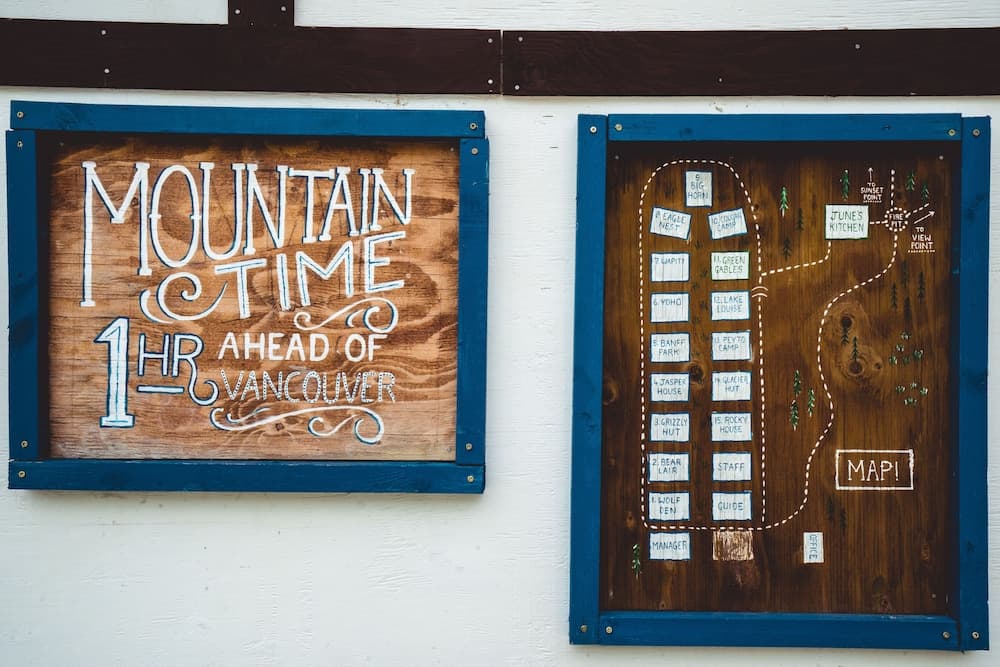 MOUNTAIN
TIME
1 HR AHEAD OF
VANCOUVER
9. BIG
HORN
8. EAGLE
NEST
10. COUGAR
CAMP
7. WAPITI
11. GREEN
GABLES
6. YOHO
12. LAKE
LOUISE
5. BANFF
PARK
13. PEYTO
CAMP
4. JASPER
HOUSE
14. GLACIER
HUT
3. GRIZZLY
HUT
15. ROCKY
HOUSE
2. BEAR
LAIR
STAFF
1. WOLF
DEN
GUIDE
MANAGER
OFFICE
TO
SUNSET
POINT
JUNE'S
KITCHEN
FIRE
PIT
TO
VIEW
POINT
MAP!